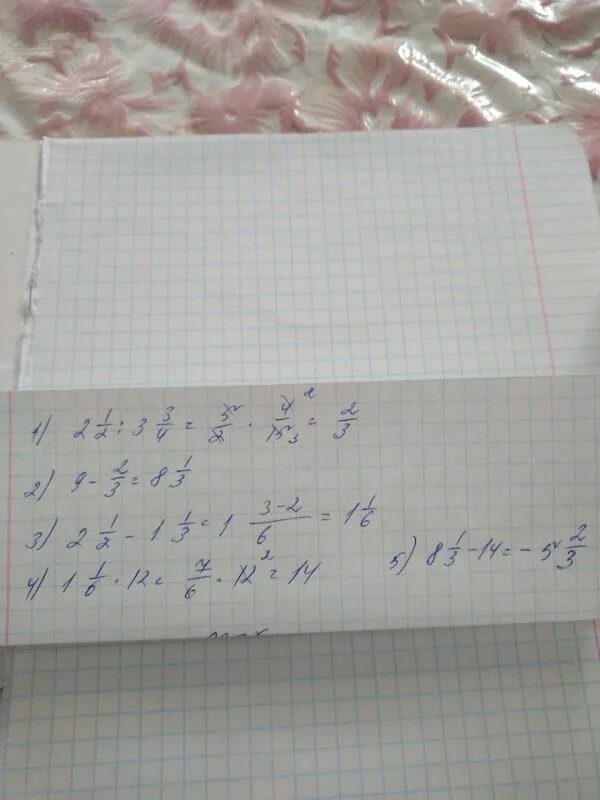 1) 2 1/2 : 3 3/4 = 5/2 · 4 2/15 3 = 2/3
2) 9 - 2/3 = 8 1/3
3) 2 1/2 - 1 1/3 = 1 3-2/6 = 1 1/6
4) 1 1/6 · 12 = 7/6 · 12 2 = 14
5) 8 1/3 - 14 = - 5 2/3